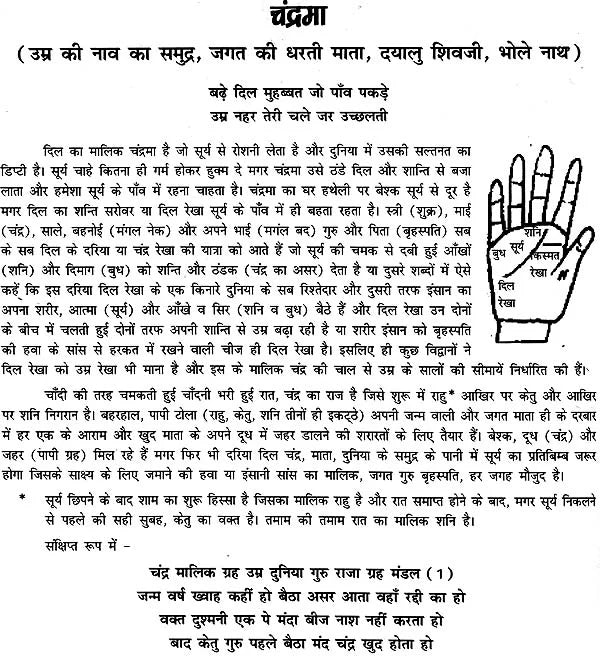 चंद्रमा
( उम्र की नाव का समुद्र, जगत की धरती माता, दयालु शिवजी, भोले नाथ )
बढ़े दिल मुहब्बत जो पाँव पकड़े
उम्र नहर तेरी चले जर उच्छलती
दिल का मालिक चंद्रमा है जो सूर्य से रोशनी लेता है और दुनिया में उसकी सल्तनत का
डिप्टी है। सूर्य चाहे कितना ही गर्म होकर हुक्म दे मगर चंद्रमा उसे ठंडे दिल और शान्ति से बजा
लाता और हमेशा सूर्य के पाँव में रहना चाहता है। चंद्रमा का घर हथेली पर बेश्क सूर्य से दूर है
मगर दिल का शन्ति सरोवर या दिल रेखा सूर्य के पाँव में ही बहता रहता है। स्त्री (शुक्र), माई
(चंद्र), साले, बहनोई (मंगल नेक) और अपने भाई (मगंल बद) गुरु और पिता (बृहस्पति) सब
के सब दिल के दरिया या चंद्र रेखा की यात्रा को आते हैं जो सूर्य की चमक से दबी हुई आँखों
(शनि) और दिमाग (बुध) को शन्ति और ठंडक (चंद्र का असर) देता है या दुसरे शब्दों में ऐसे
कहें कि इस दरिया दिल रेखा के एक किनारे दुनिया के सब रिश्तेदार और दुसरी तरफ इंसान का
अपना शरीर, आत्मा (सूर्य) और आँखे व सिर (शनि व बुध) बैठे हैं और दिल रेखा उन दोनों
के बीच में चलती हुई दोनों तरफ अपनी शान्ति से उम्र बढ़ा रही है या शरीर इंसान को बृहस्पति
की हवा के सांस से हरकत में रखने वाली चीज ही दिल रेखा है। इसलिए ही कुछ विद्वानों ने
दिल रेखा को उम्र रेखा भी माना है और इस के मालिक चंद्र की चाल से उम्र के सालों की सीमायें निर्धारित की हैं।
शनि
बुध
सूर्य
किस्मत
रेखा
दिल
रेखा
चाँदी की तरह चमकती हुई चाँदनी भरी हुई रात, चंद्र का राज है जिसे शुरू में राहु* आखिर पर केतु और आखिर
पर शनि निगरान है। बहरहाल, पापी टोला (राहु, केतु, शनि तीनों ही इकट्ठे) अपनी जन्म वाली और जगत माता ही के दरबार
में हर एक के आराम और खुद माता के अपने दूध में जहर डालने की शरारतों के लिए तैयार हैं। बेश्क, दूध (चंद्र) और
जहर (पापी ग्रह) मिल रहे हैं मगर फिर भी दरिया दिल चंद्र, माता, दुनिया के समुद्र के पानी में सूर्य का प्रतिबिम्ब जरूर
होगा जिसके साक्ष्य के लिए जमाने की हवा या इंसानी सांस का मालिक, जगत गुरु बृहस्पति, हर जगह मौजुद है।
* सूर्य छिपने के बाद शाम का शुरू हिस्सा है जिसका मालिक राहु है और रात समाप्त होने के बाद, मगर सूर्य निकलने
से पहले की सही सुबह, केतु का वक्त है। तमाम की तमाम रात का मालिक शनि है।
संक्षिप्त रूप में –
चंद्र मालिक ग्रह उम्र दुनिया गुरु राजा ग्रह मंडल (1)
जन्म वर्ष ख्वाह कहीं हो बैठा असर आता वाहाँ रद्दी का हो
वक्त दुश्मनी एक पे मंदा बीज नाश नहीं करता हो
बाद केतु गुरु पहले बैठा मंद चंद्र खुद होता हो